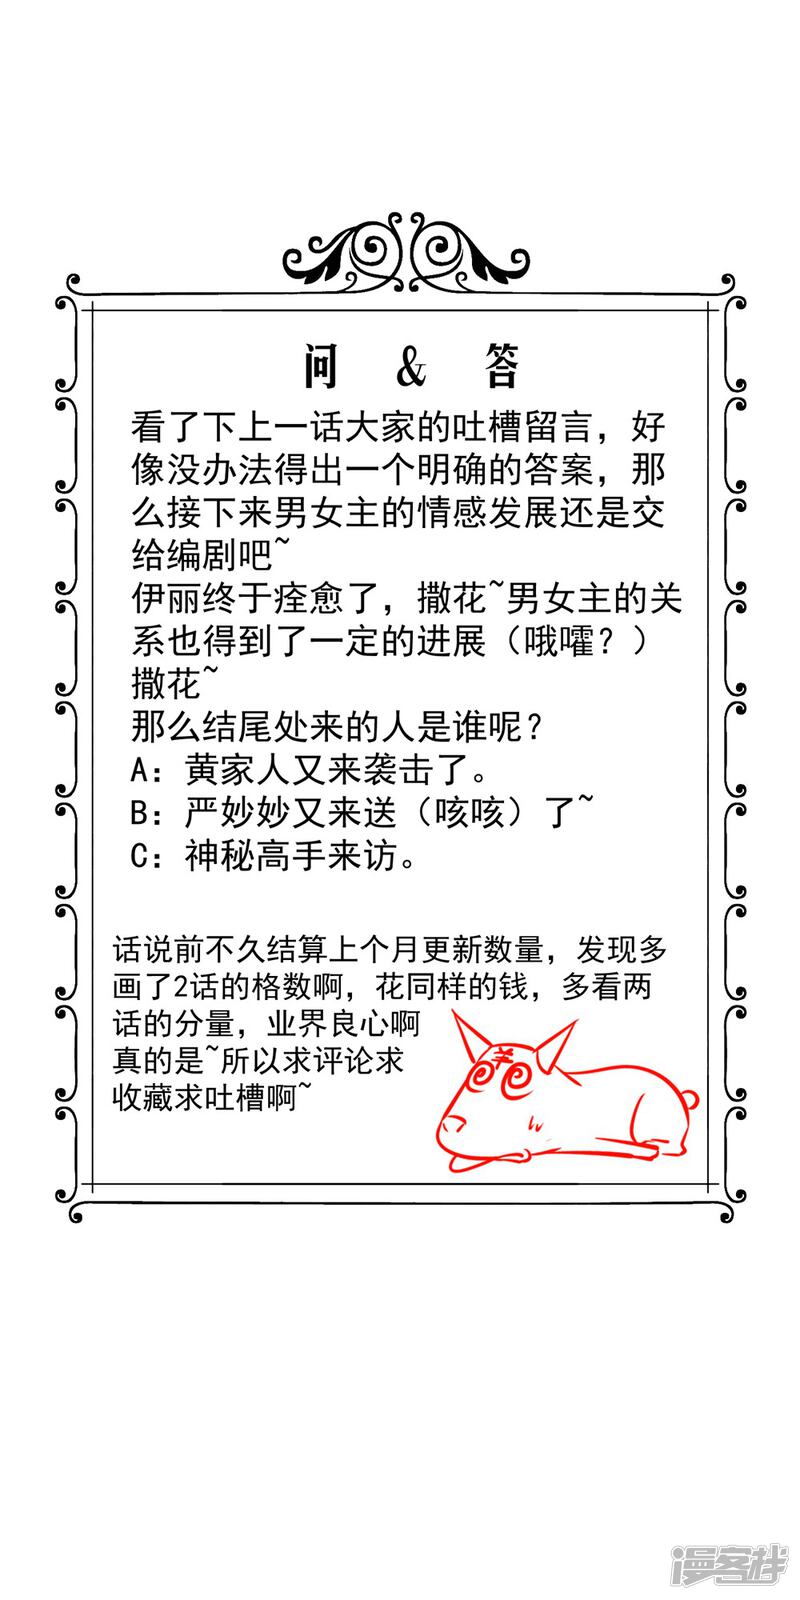 问 & 答
看了下上一话大家的吐槽留言，好
像没办法得出一个明确的答案，那
么接下来男女主的情感发展还是交
给编剧吧~
伊丽终于痊愈了，撒花~男女主的关
系也得到了一定的进展（哦嚯？）
撒花~
那么结尾处来的人是谁呢？
A：黄家人又来袭击了。
B：严妙妙又来送（咳咳）了~
C：神秘高手来访。
话说前不久结算上个月更新数量，发现多
画了2话的格数啊，花同样的钱，多看两
话的分量，业界良心啊
真的是~所以求评论求
收藏求吐槽啊~
漫客栈